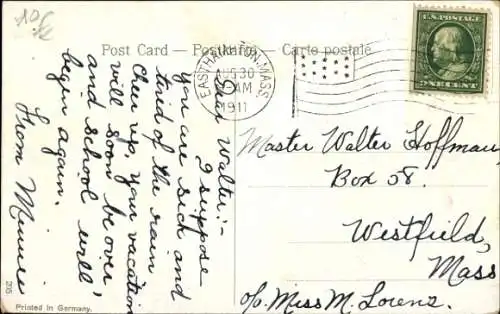 10c
Post Card – Postkarte – Carte postale
EASTHAMPTON, MASS.
AUG 30
AM
1911
U.S. POSTAGE
ONE CENT
Dear Walter:-
I suppose
you are sick and
tired of the rain
Cheer up, you vacation
will soon be over
and school will
begin again.
From Minnie
Master Walter Hoffman
Box 58.
Westfield,
Mass
c/o Miss M. Lorenz.
Printed in Germany.